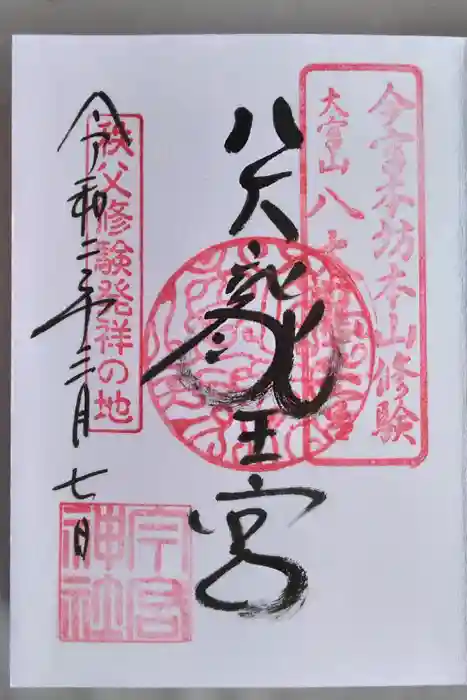 今宮本坊本山修験
大宮山 八大
八大龍王宮
秩父修験発祥の地
令和二年三月七日
今宮
神社